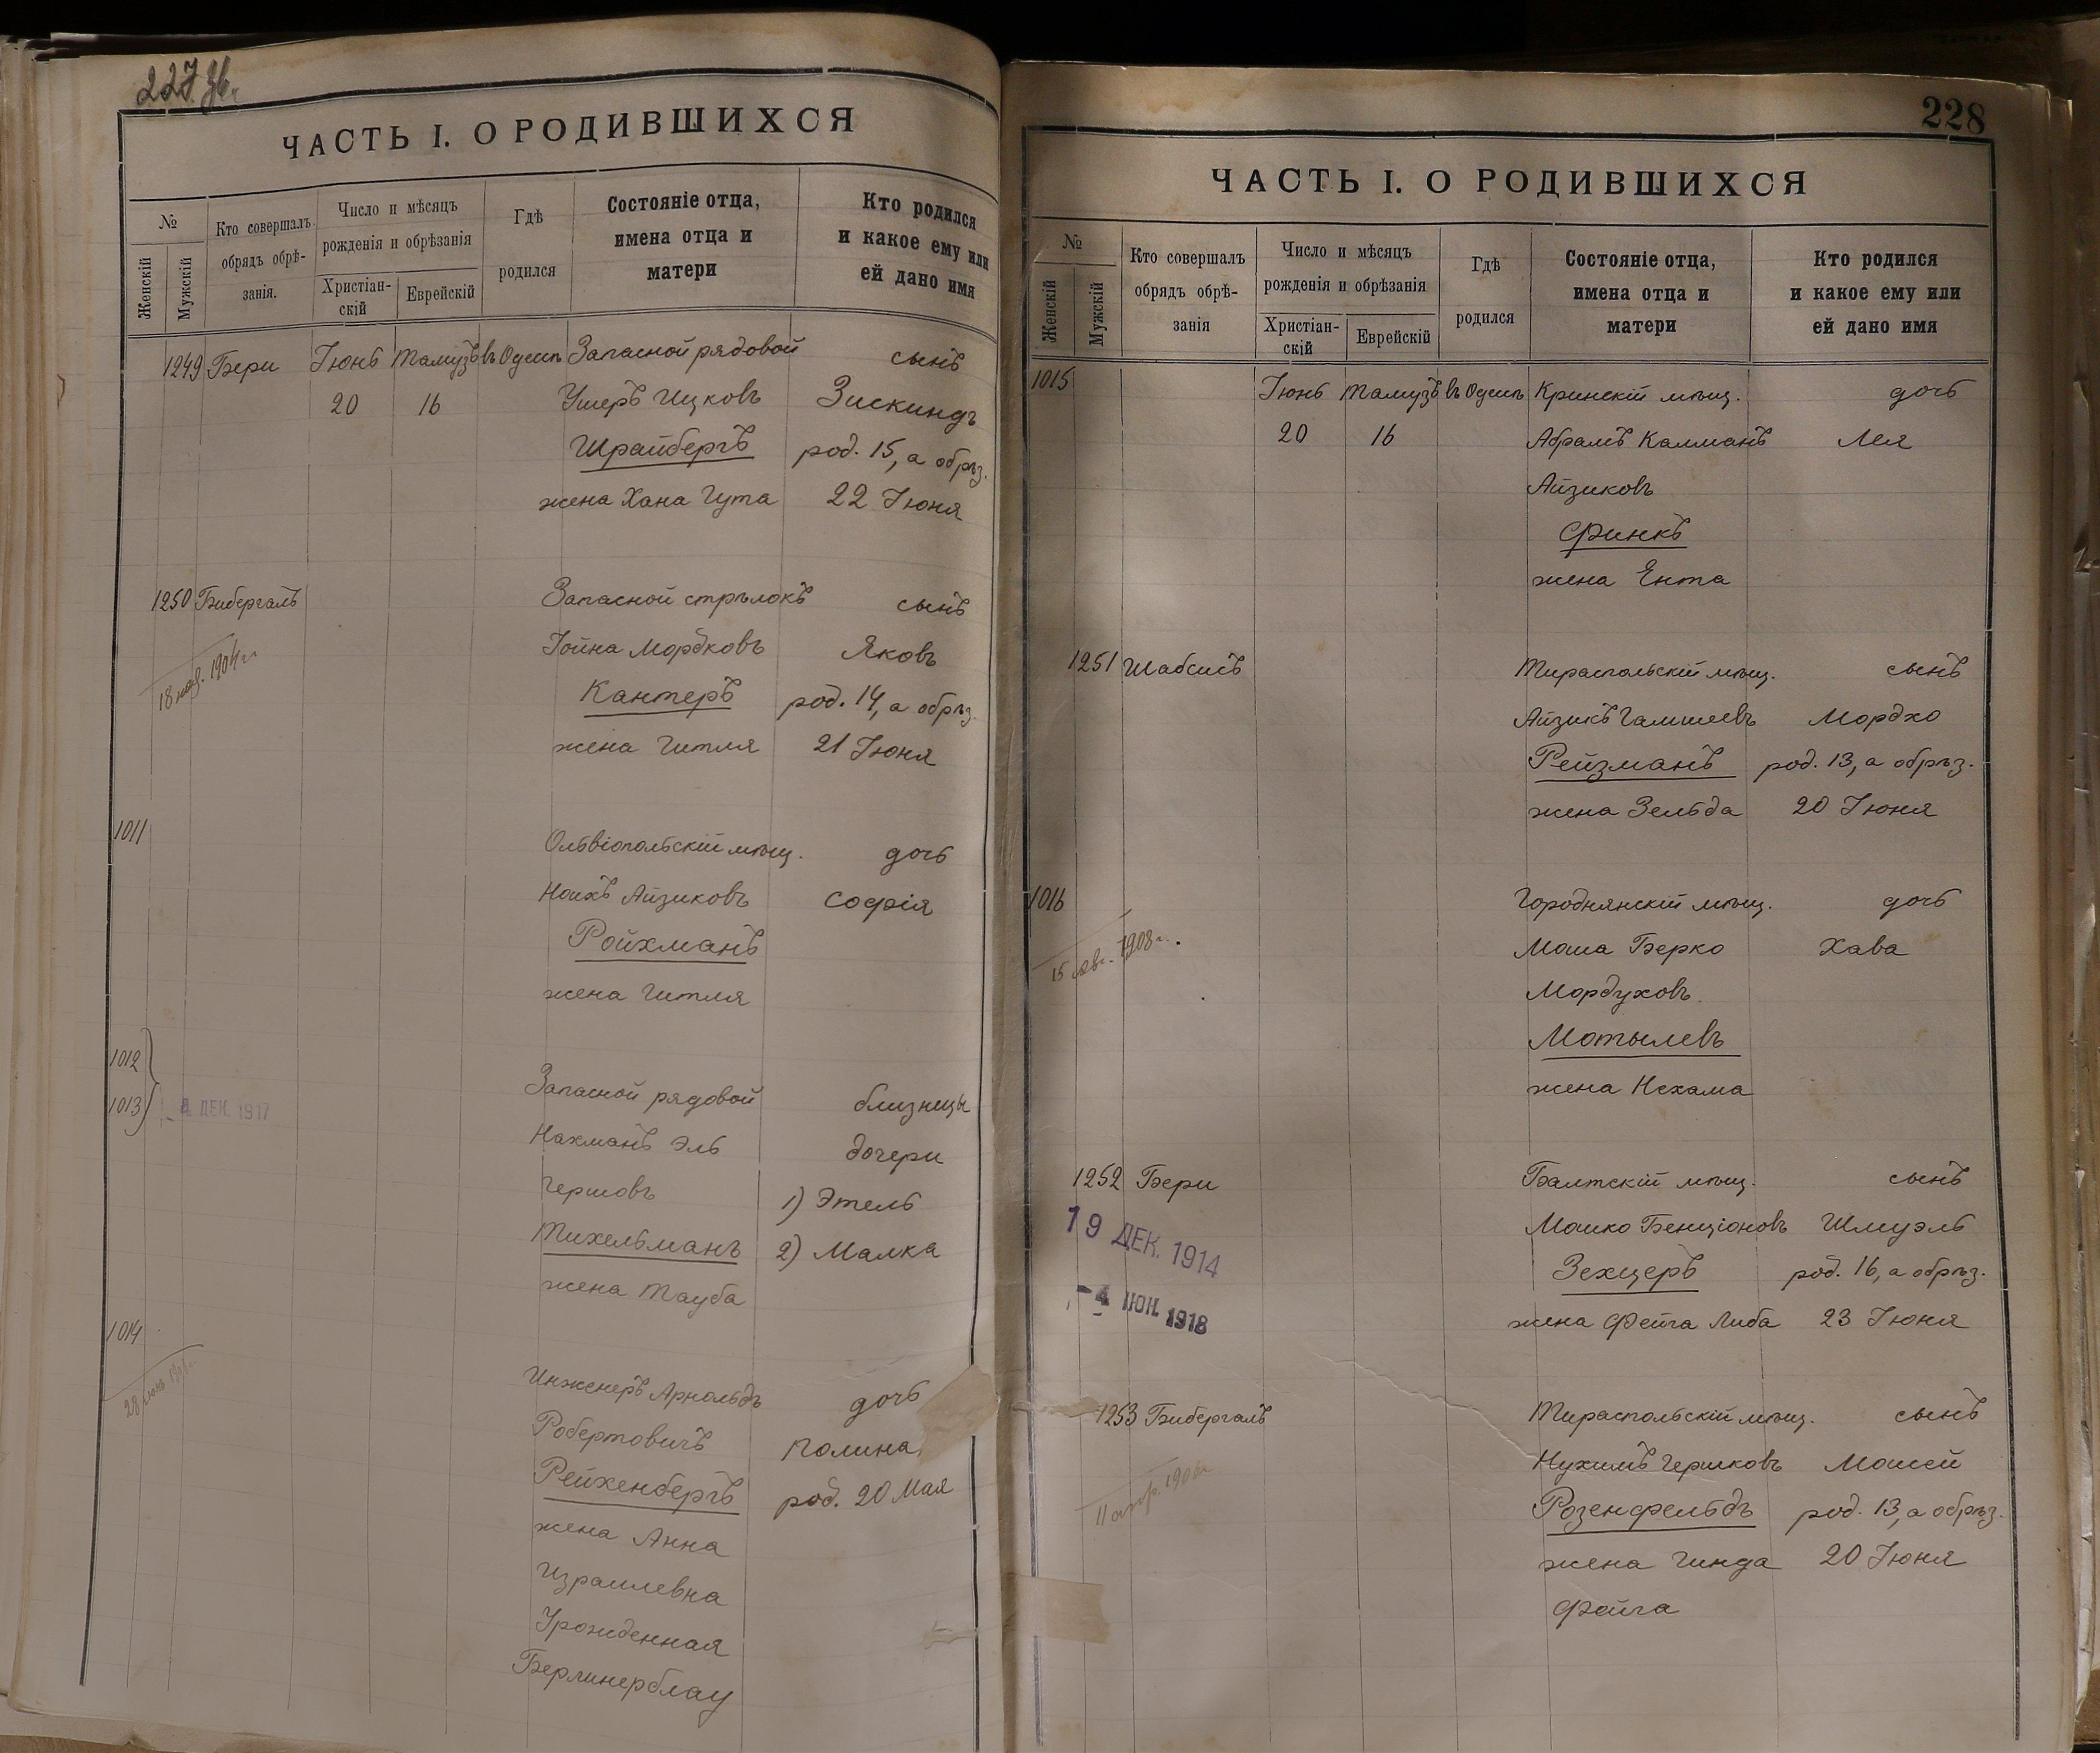 227 об.
ЧАСТЬ I. О РОДИВШИХСЯ
№
Женскій
Мужскій
Кто совершалъ
обрядъ обрѣ-
занія.
Число и мѣсяцъ
рожденія и обрѣзанія
Христіан-
скій
Еврейскій
Гдѣ
родился
Состояніе отца,
имена отца и
матери
Кто родился
и какое ему или
ей дано имя
1249 Бери Іюнь Тамузъ въ Одессѣ Запасной рядовой сынъ
20 16 Ушеръ Ицковъ Зискиндъ
Шрайбергъ род. 15, а обрѣз.
жена Хана Гута 22 Іюня
1250 Бибергалъ Запасной стрѣлокъ сынъ
Іойна Мордковъ Яковъ
18 1904 г. Кантеръ род. 14, а обрѣз.
жена Гитля 21 Іюня
1011 Ольвіопольскій мѣщ. дочь
Ноихъ Айзиковъ Софія
Ройхманъ
жена Гитля
1012
1013 - 4 ДЕК. 1917 Запасной рядовой близнецы
Нахманъ Эль дочери
Гершовъ 1) Этель
Тихельманъ 2) Малка
жена Тауба
1014
28 Инженеръ Арнольдъ дочь
Робертовичъ Полина
Рейхенбергъ род. 20 Мая
жена Анна
Израилевна
Урожденная
Берлинерблау
228
ЧАСТЬ I. О РОДИВШИХСЯ
№
Женскій
Мужскій
Кто совершалъ
обрядъ обрѣ-
занія
Число и мѣсяцъ
рожденія и обрѣзанія
Христіан-
скій
Еврейскій
Гдѣ
родился
Состояніе отца,
имена отца и
матери
Кто родился
и какое ему или
ей дано имя
1015 Іюнь Тамузъ въ Одессѣ Кринскій мѣщ. дочь
20 16 Абрамъ Калманъ Лея
Айзиковъ
Финкъ
жена Ента
1251 Шабсисъ Тираспольскій мѣщ. сынъ
Айзикъ Гамшеевъ Мордко
Рейзманъ род. 13, а обрѣз.
жена Зельда 20 Іюня
1016 Городнянскій мѣщ. дочь
15 1908 г. Моша Берко Хава
Мордуховъ
Мотылевъ
жена Нехама
1252 Бери Балтскій мѣщ. сынъ
19 ДЕК. 1914 Мошко Бенціоновъ Шмуэль
Зехцеръ род. 16, а обрѣз.
- 4 ІЮН. 1918 жена Фейга Либа 23 Іюня
1253 Бибергалъ Тираспольскій мѣщ. сынъ
Нухимъ Гершковъ Моисей
11 апр. 1906 г. Розенфельдъ род. 13, а обрѣз.
жена Гинда 20 Іюня
Фейга